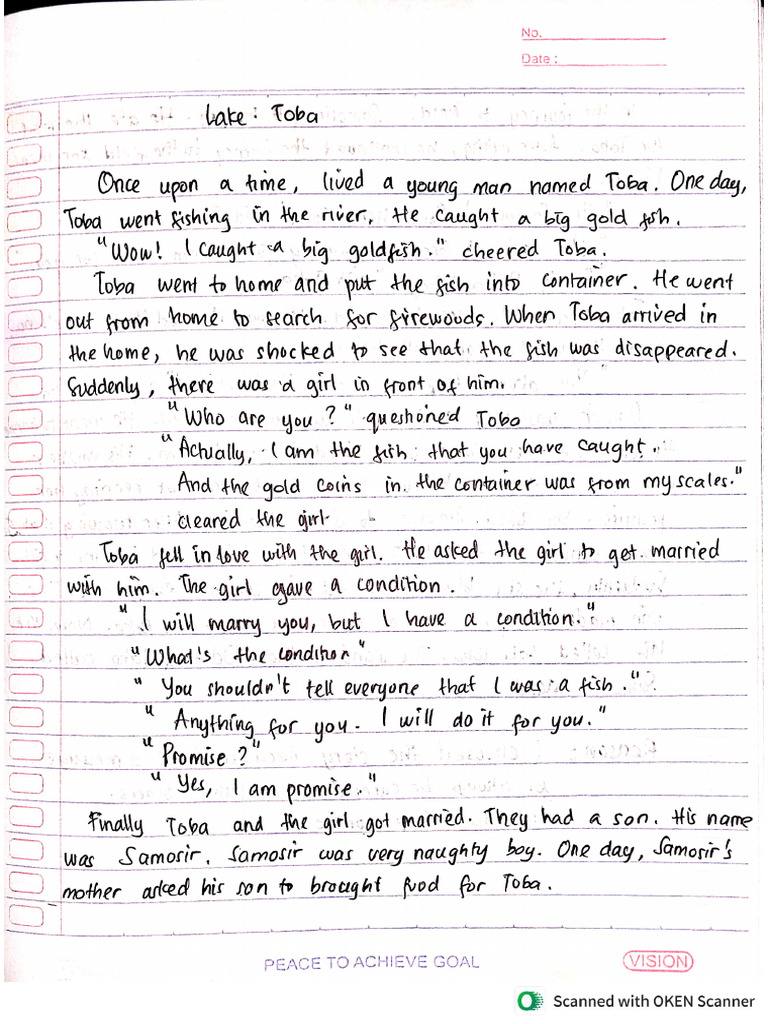 No.
Date :
Lake : Toba
Once upon a time, lived a young man named Toba. One day,
Toba went fishing in the river. He caught a big gold fish.
"Wow! I caught a big goldfish." cheered Toba.
Toba went to home and put the fish into container. He went
out from home to search for firewoods. When Toba arrived in
the home, he was shocked to see that the fish was disappeared.
Suddenly, there was a girl in front of him.
"Who are you?" questioned Toba
"Actually, I am the fish that you have caught.
And the gold coins in the container was from my scales."
cleared the girl.
Toba fell in love with the girl. He asked the girl to get married
with him. The girl gave a condition.
"I will marry you, but I have a condition."
"What's the condition"
"You shouldn't tell everyone that I was a fish."
"Anything for you. I will do it for you."
"Promise?"
"Yes, I am promise."
Finally Toba and the girl got married. They had a son. His name
was Samosir. Samosir was very naughty boy. One day, Samosir's
mother asked his son to brought food for Toba.
PEACE TO ACHIEVE GOAL
VISION
Scanned with OKEN Scanner